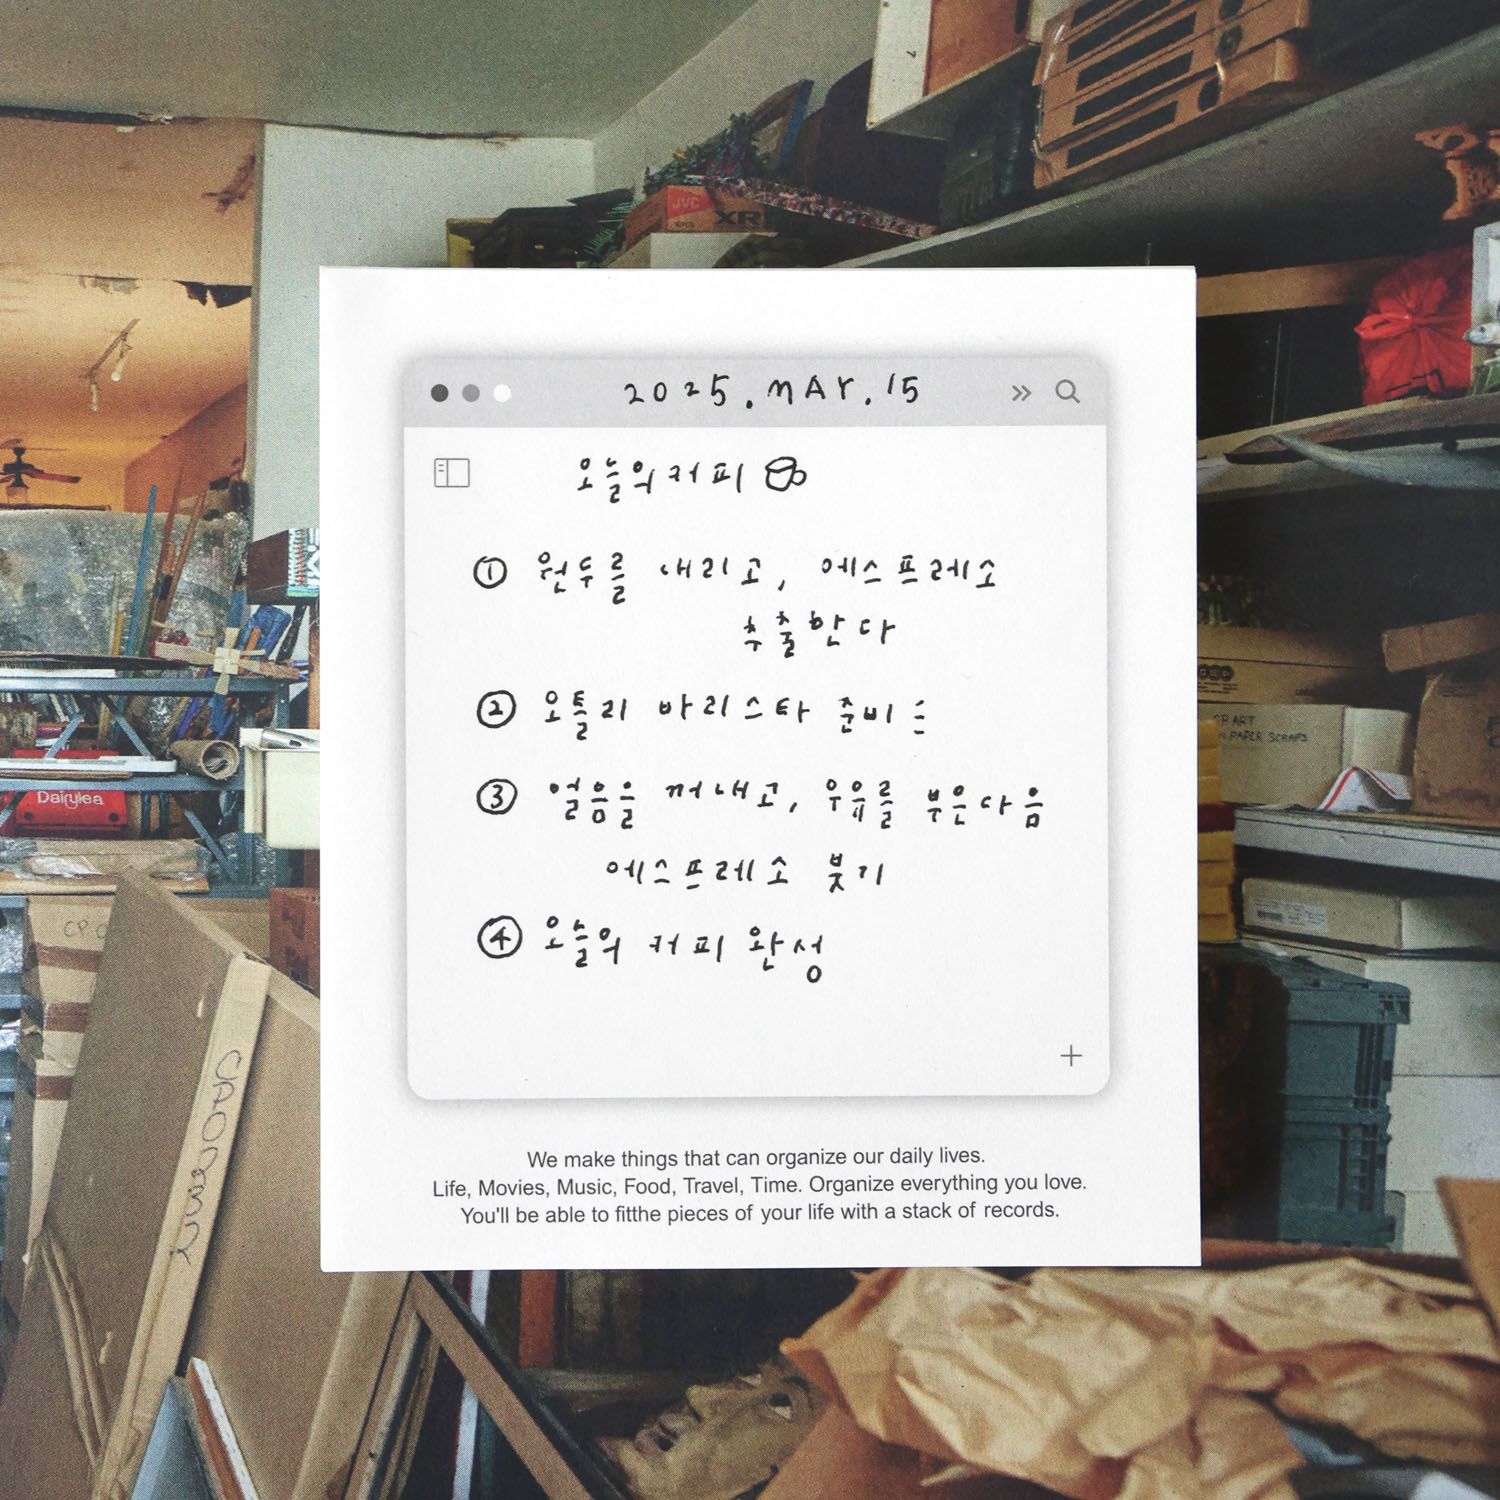 7
JVC
XR
2025.MAR.15
오늘의 커피
① 원두를 내리고, 에스프레소
추출한다
② 오틀리 바리스타 준비
③ 얼음을 꺼내고, 우유를 부은다음
에스프레소 붓기
④ 오늘의 커피 완성
We make things that can organize our daily lives.
Life, Movies, Music, Food, Travel, Time. Organize everything you love.
You'll be able to fitthe pieces of your life with a stack of records.
Dairylea
CP ART
PAPER SCRAPS